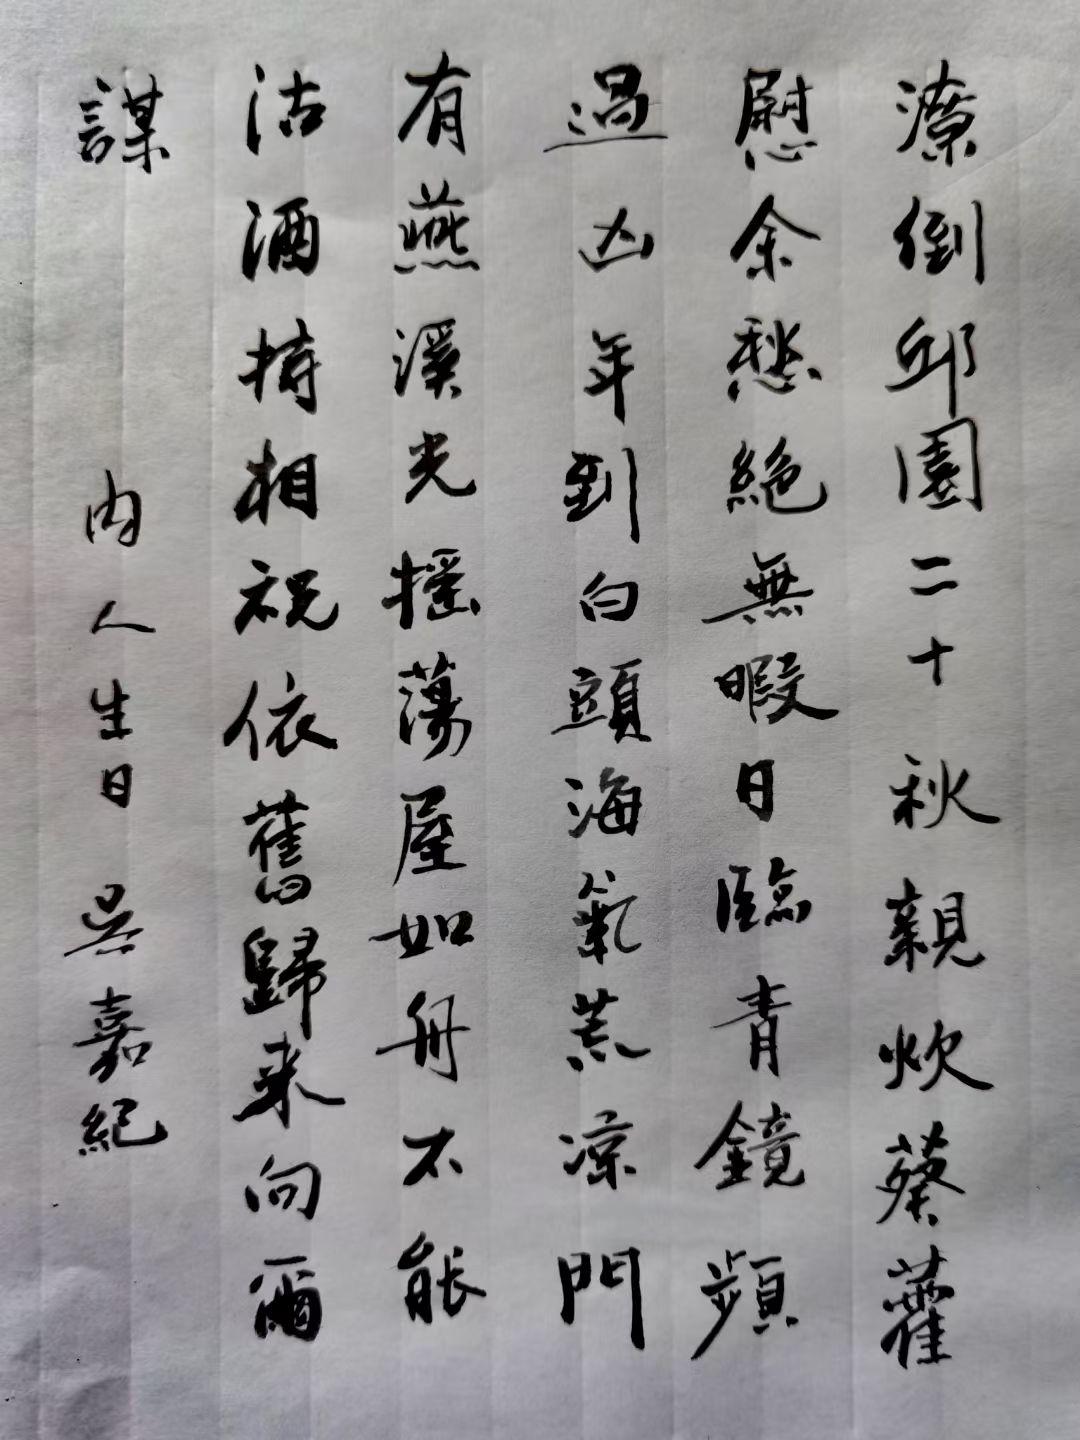 潦倒邱園二十秋親炊葵藿
慰余愁絶無暇日臨青鏡頻
過凶年到白頭海氣荒涼門
有燕溪光摇蕩屋如舟不能
沽酒持相祝依舊歸来向爾
謀
内人生日 吴嘉紀